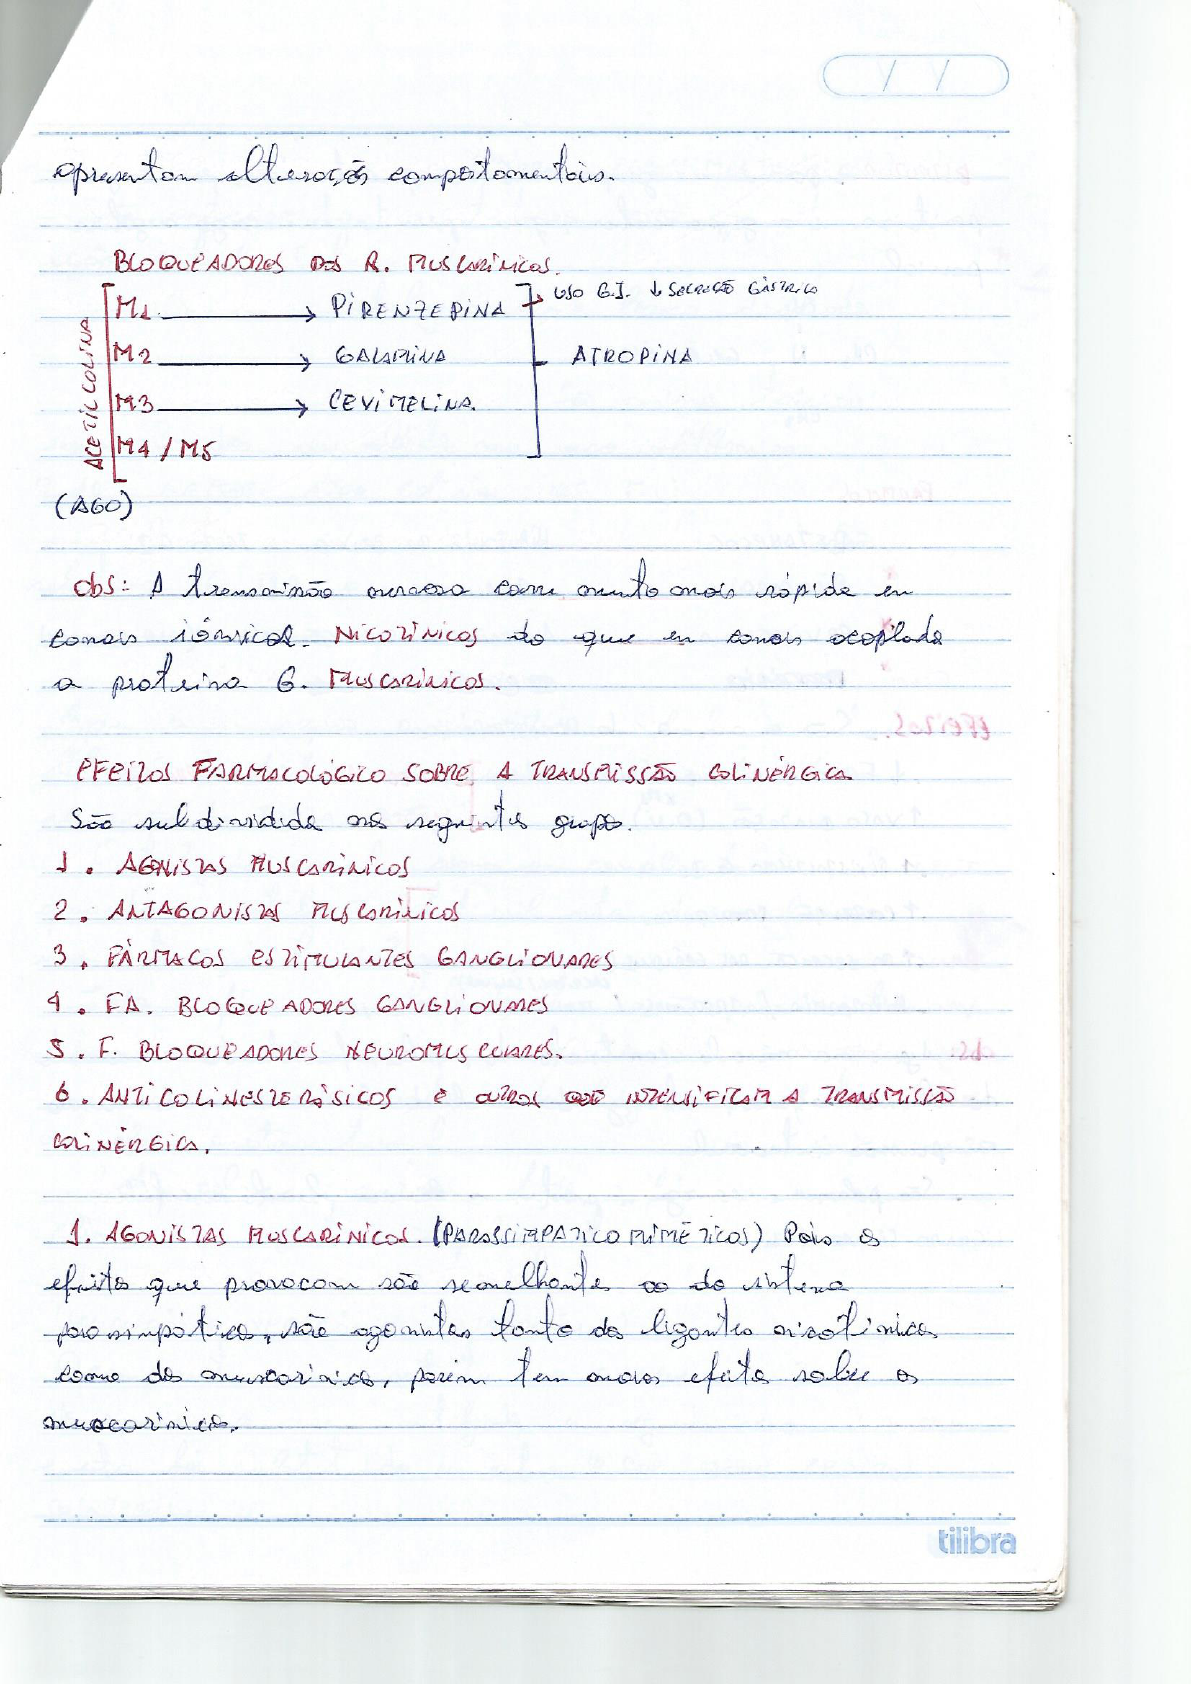 apresentam alterações comportamentais.
BLOQUEADORES DOS R. MUSCARÍNICOS.
M1 → PIRENZEPINA → USO G.I. ↓ SECREÇÃO GÁSTRICA
M2 → GALAMINA ATROPINA
M3 → CEVIMELINA.
M4 / M5
ACETILCOLINA
(AGO)
Obs: A transmissão nervosa ocorre muito mais rápida em
canais iônicos. NICOTÍNICOS do que em canais acoplada
a proteina G. MUSCARÍNICOS.
EFEITOS FARMACOLÓGICO SOBRE A TRANSMISSÃO COLINÉRGICA
São subdividida nos seguintes grupos.
1. AGONISTAS MUSCARÍNICOS
2. ANTAGONISTAS MUSCARÍNICOS
3. FÁRMACOS ESTIMULANTES GANGLIONARES
4. FA. BLOQUEADORES GANGLIONARES
5. F. BLOQUEADORES NEUROMUSCULARES.
6. ANTICOLINESTERÁSICOS e OUTROS QUE INTENSIFICAM A TRANSMISSÃO
COLINÉRGICA.
1. AGONISTAS MUSCARÍNICOS. (PARASSIMPATICOMIMÉTICOS) Pois os
efeitos que provocam são semelhantes ao do sistema
parasimpático, são agonistas tanto dos ligantes nicotínicos
como dos muscarínicos, porém tem mais efeitos sobre os
muscarínicos.
tilibra